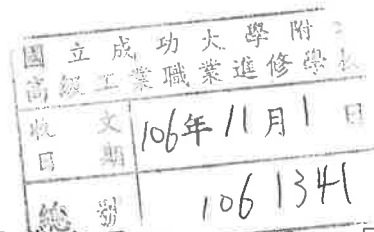 國立成功大學附
高級工業職業進修學校
收文日期 106年11月1日
總號 1061341